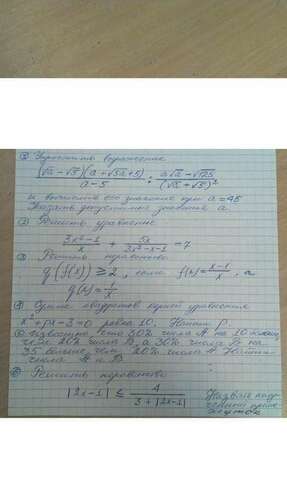 ① Упростить выражение
(√a − √5)(a + √5a + 5) / (a − 5) : (a√a − √125) / (√a + √5)²
и вычислить его значение при a = 45
Указать допустимые значения a.
② Решить уравнение
(3x² − 1) / x + 5x / (3x² − x − 1) = 7
③ Решить неравенство
g(f(x)) ≥ 2, если f(x) = (x − 1) / x, а
g(x) = 1 / x
④ Сумма квадратов корней уравнения
x² + px − 3 = 0 равна 10. Найти p.
⑤ Известно, что 30% числа A на 10 больше,
чем 20% числа B, а 30% числа B на
35 больше чем 20% числа A. Найти
числа A и B.
⑥ Решить неравенство
|2x − 1| ≤ 4 / (3 + |2x − 1|)